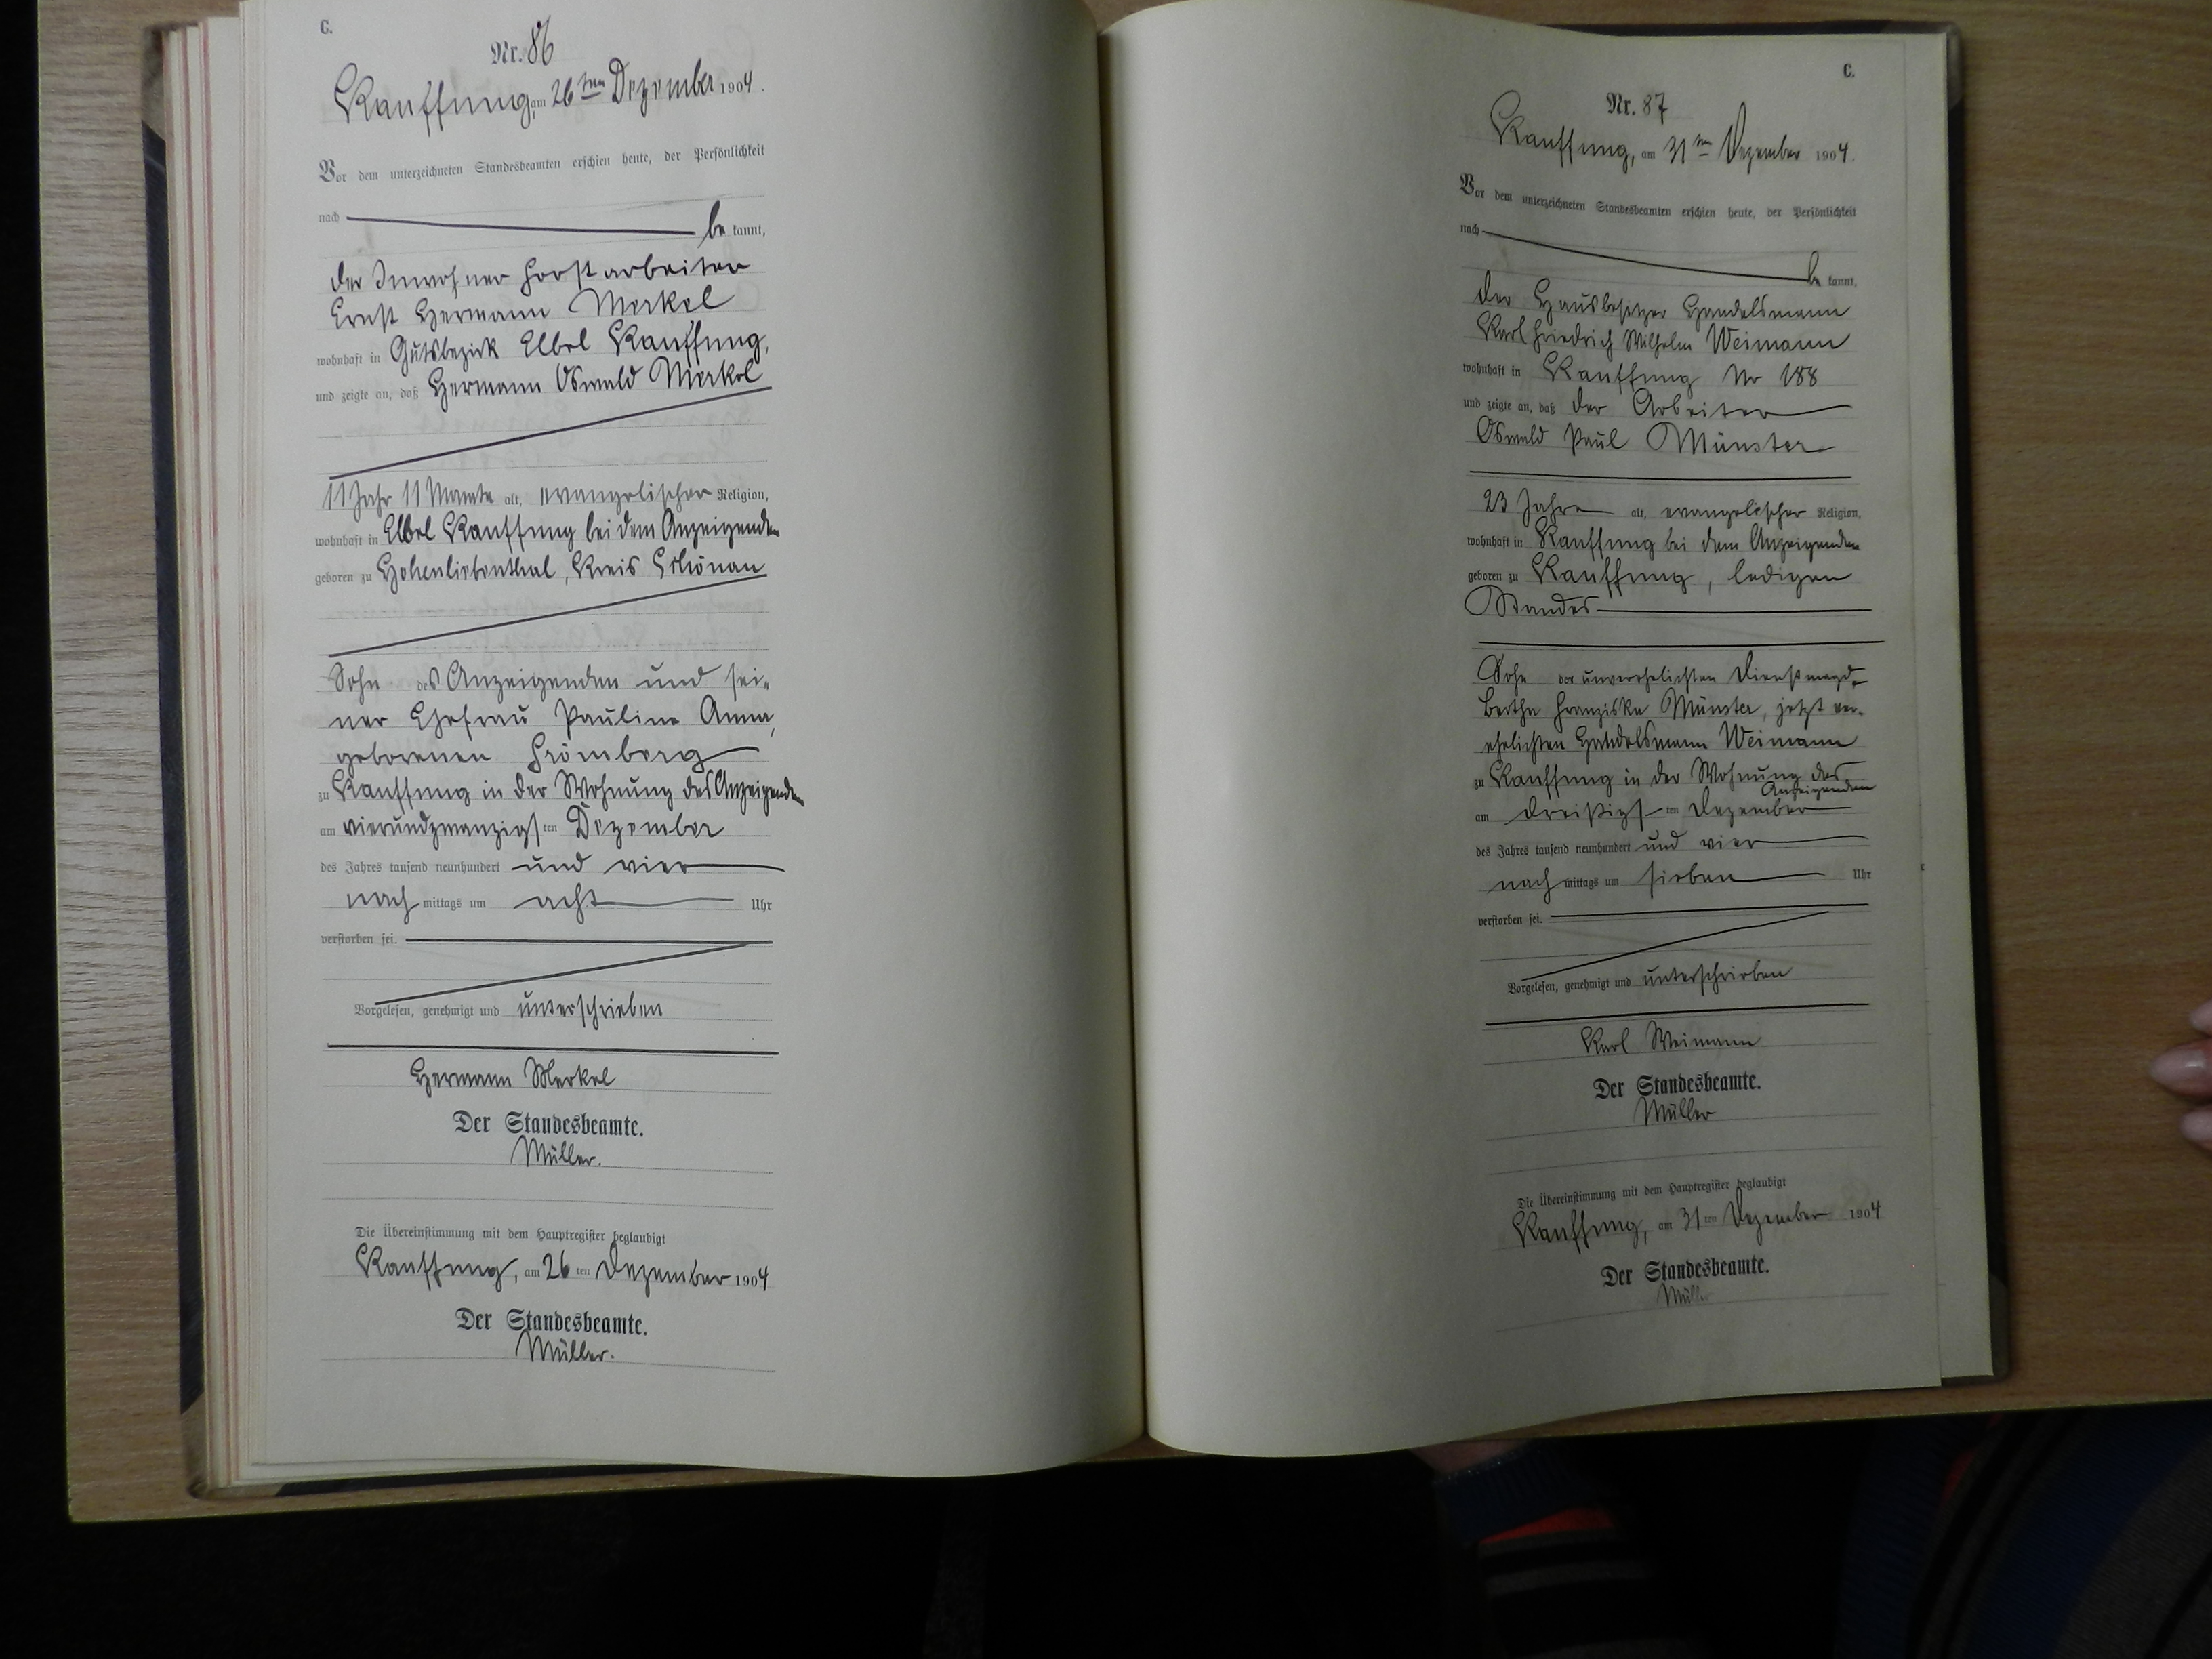 C.
Nr. 86
Kauffung, am 26ten Dezember 1904.
Vor dem unterzeichneten Standesbeamten erschien heute, der Persönlichkeit
nach be kannt,
der Inwohner Forstarbeiter
Ernst Hermann Merkel
wohnhaft in Gutsbezirk Elbel Kauffung,
und zeigte an, daß Hermann Oswald Merkel
11 Jahr 11 Monate alt, evangelischer Religion,
wohnhaft in Elbel Kauffung bei dem Anzeigenden
geboren zu Hohenliebenthal, Kreis Schönau
Sohn des Anzeigenden und sei-
ner Ehefrau Pauline Anna,
geborenen Frömberg
zu Kauffung in der Wohnung des Anzeigenden
am vierundzwanzigsten Dezember
des Jahres tausend neunhundert und vier
nach mittags um acht Uhr
verstorben sei.
Vorgelesen, genehmigt und unterschrieben
Hermann Merkel
Der Standesbeamte.
Müller.
Die Übereinstimmung mit dem Hauptregister beglaubigt
Kauffung, am 26 ten Dezember 1904
Der Standesbeamte.
Müller.
C.
Nr. 87
Kauffung, am 31ten Dezember 1904.
Vor dem unterzeichneten Standesbeamten erschien heute, der Persönlichkeit
nach be kannt,
der Hausbesitzer Handelsmann
Karl Friedrich Wilhelm Weimann
wohnhaft in Kauffung Nr 188
und zeigte an, daß der Arbeiter
Oswald Paul Münster
23 Jahre alt, evangelischer Religion,
wohnhaft in Kauffung bei dem Anzeigenden
geboren zu Kauffung, ledigen
Standes
Sohn der unverehelichten Dienstmagd
Bertha Franziska Münster, jetzt ver-
ehelichten Handelsmann Weimann
zu Kauffung in der Wohnung des
Anzeigenden
am dreißigsten Dezember
des Jahres tausend neunhundert und vier
nach mittags um sieben Uhr
verstorben sei.
Vorgelesen, genehmigt und unterschrieben
Karl Weimann
Der Standesbeamte.
Müller
Die Übereinstimmung mit dem Hauptregister beglaubigt
Kauffung, am 31 ten Dezember 1904
Der Standesbeamte.
Müller